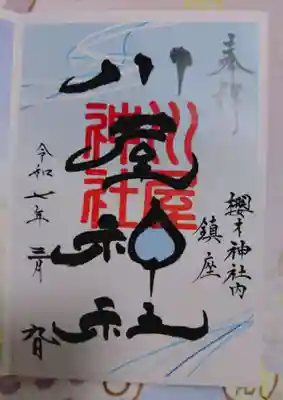 奉拝
櫻木神社内
鎮座
川屋神社
川屋
神社
令和七年三月九日